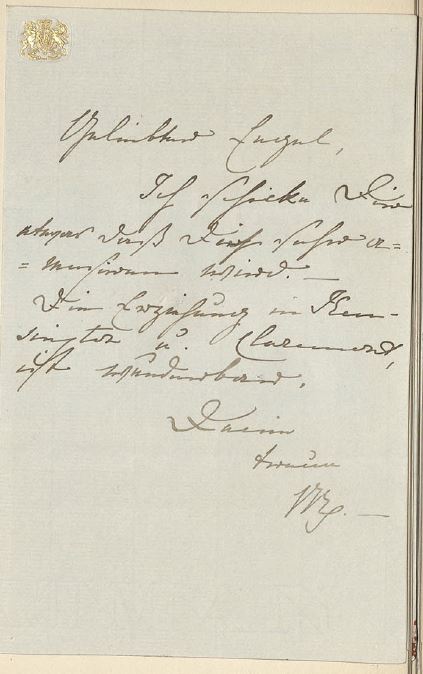 Geliebter Engel,
Ich schicke Dir
etwas daß Dich sehr a=
=musiren wird. —
Die Erziehung in Ken-
sington u. Claremont,
ist wunderbar.
Deine
treue
VR. —